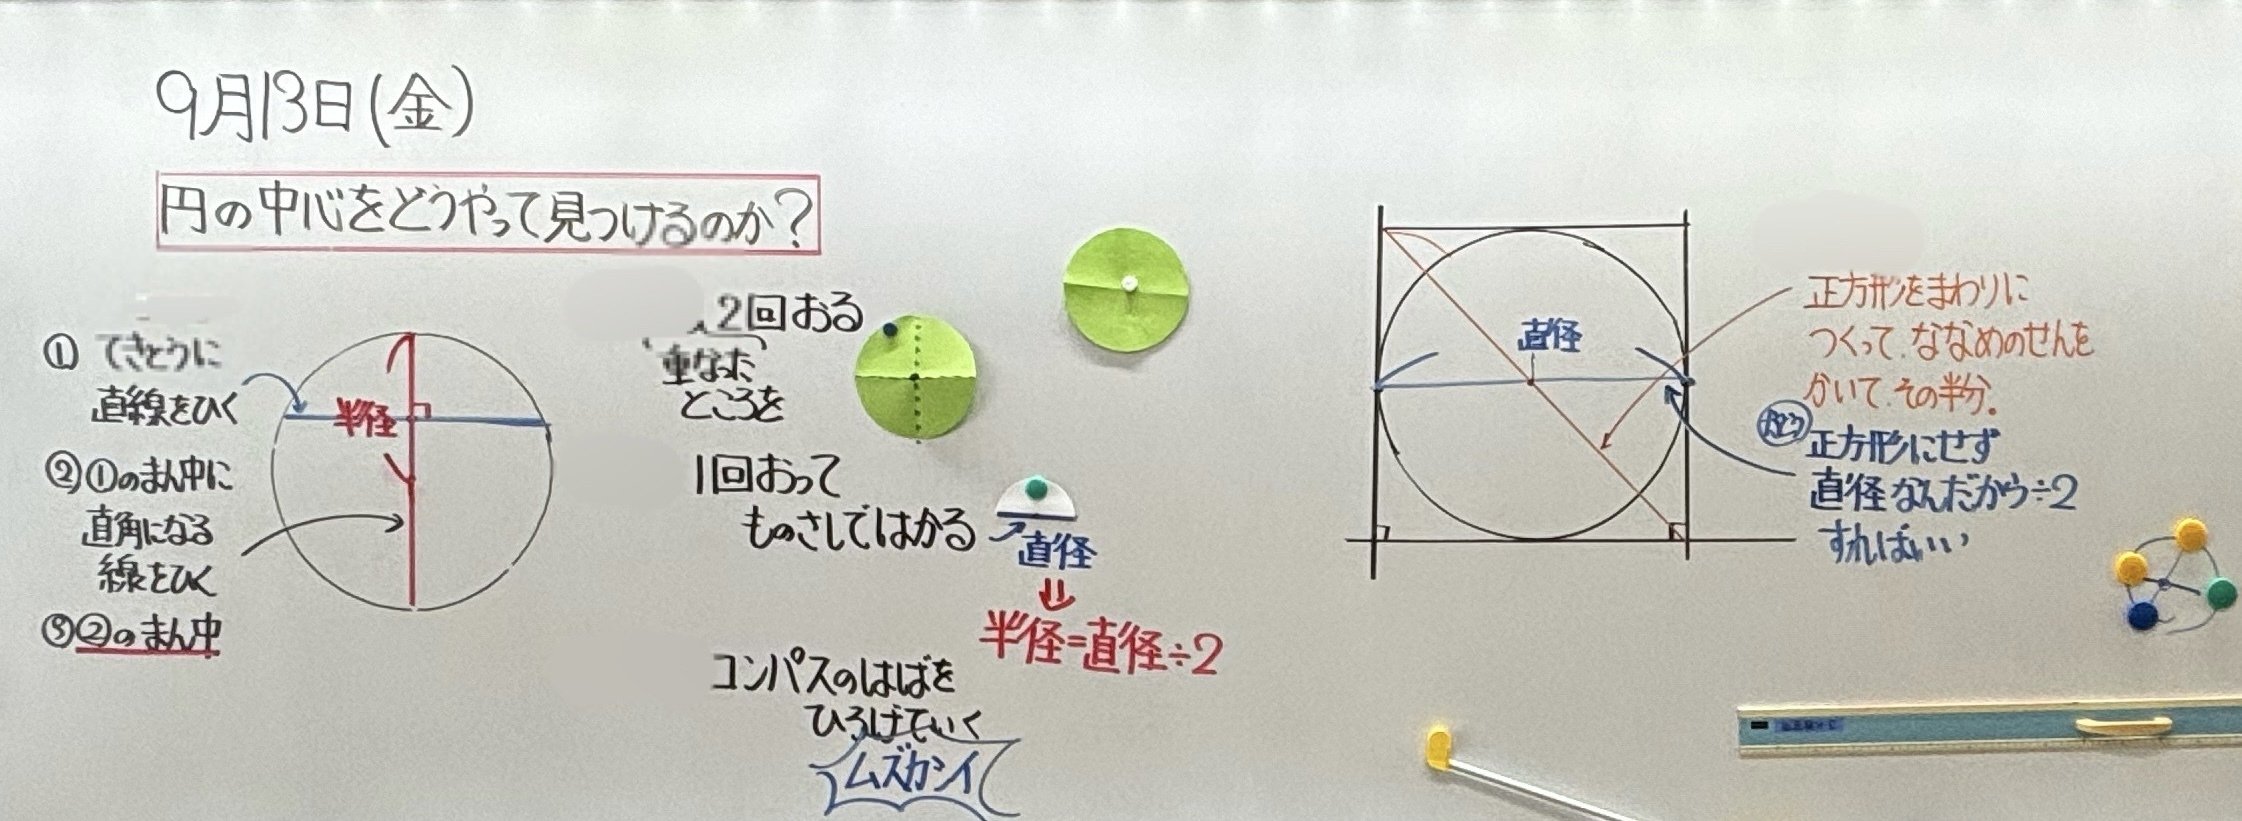 9月13日(金)
円の中心をどうやって見つけるのか?
① てきとうに
直線をひく
②①のまん中に
直角になる
線をひく
③②のまん中
半径
2回おる
重なった
ところを
1回おって
ものさしではかる
直径
⇓
半径=直径÷2
コンパスのはばを
ひろげていく
ムズカシイ
直径
正方形をまわりに
つくって、ななめのせんを
かいて、その半分。
正方形にせず
直径なんだから÷2
すればいい